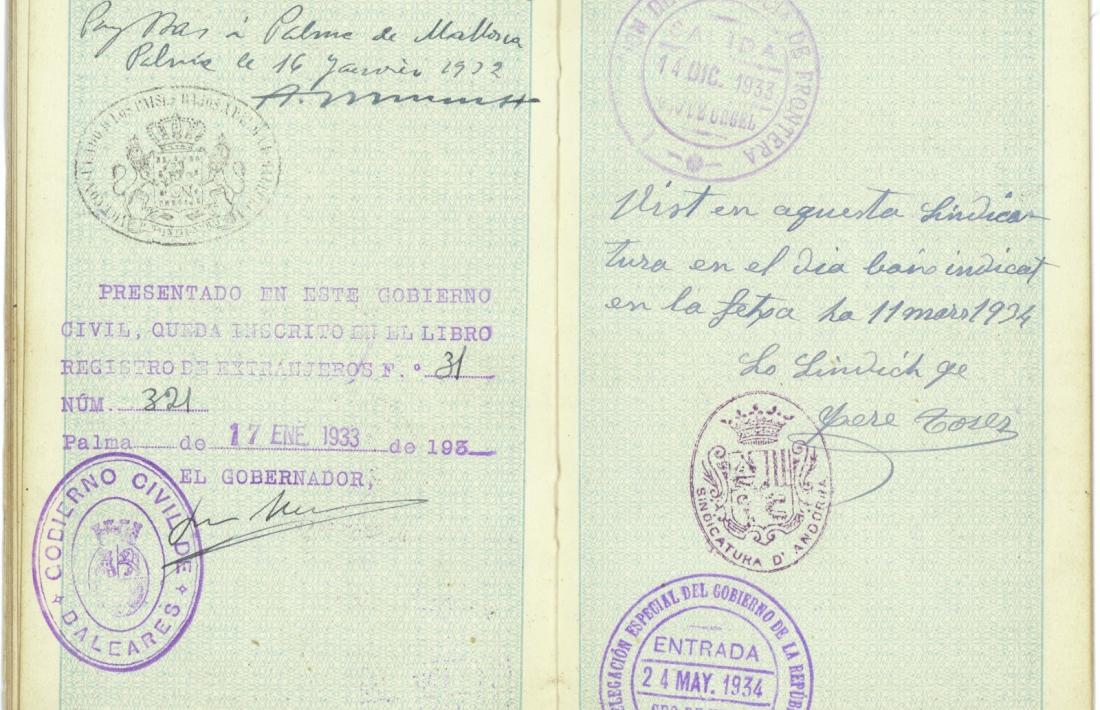 Pays Bas à Palma de Mallorca
Palma le 16 Janvier 1932
PRESENTADO EN ESTE GOBIERNO
CIVIL, QUEDA INSCRITO EN EL LIBRO
REGISTRO DE EXTRANJEROS F.º 31
NÚM. 321
Palma de 17 ENE 1933 de 193
EL GOBERNADOR,
GOBIERNO CIVIL DE
BALEARES
DE FRONTERA
SALIDA
14 DIC. 1933
Vist en aquesta Sindica-
tura en el dia indicat
en la fetxa ha 11 mars 1934
Lo Sindich
Pere
SINDICATURA D' ANDORRA
DELEGACIÓN ESPECIAL DEL GOBIERNO DE LA
ENTRADA
24 MAY. 1934